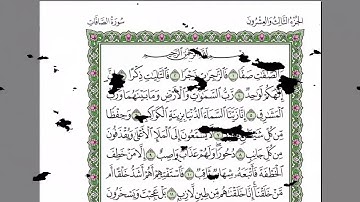 الجزء الثالث والعشرون
سورة الصافات
بِسْمِ اللَّهِ الرَّحْمَٰنِ الرَّحِيمِ
وَالصَّٰٓفَّٰتِ صَفًّا ۝ فَالزَّٰجِرَٰتِ زَجْرًا ۝ فَالتَّٰلِيَٰتِ ذِكْرًا ۝
إِلَٰهَكُمْ لَوَٰحِدٌ ۝ رَّبُّ السَّمَٰوَٰتِ وَالْأَرْضِ وَمَا بَيْنَهُمَا وَرَبُّ
الْمَشَٰرِقِ ۝ إِنَّا زَيَّنَّا السَّمَآءَ الدُّنْيَا بِزِينَةٍ الْكَوَاكِبِ ۝ وَحِفْظًا
مِّن كُلِّ لَّا يَسَّمَّعُونَ إِلَى الْمَلَإِ الْأَعْلَىٰ وَيُقْذَفُونَ
مِن كُلِّ جَانِبٍ ۝ دُحُورًا وَلَهُمْ عَذَابٌ وَاصِبٌ ۝ إِلَّا مَنْ خَطِفَ
الْخَطْفَةَ فَأَتْبَعَهُ شِهَابٌ ۝ فَاسْتَفْتِهِمْ أَهُمْ أَشَدُّ خَلْقًا أَم
مَّنْ خَلَقْنَا إِنَّا خَلَقْنَٰهُم مِّن طِينٍ لَّازِبٍ ۝ بَلْ عَجِبْتَ وَيَسْخَرُونَ